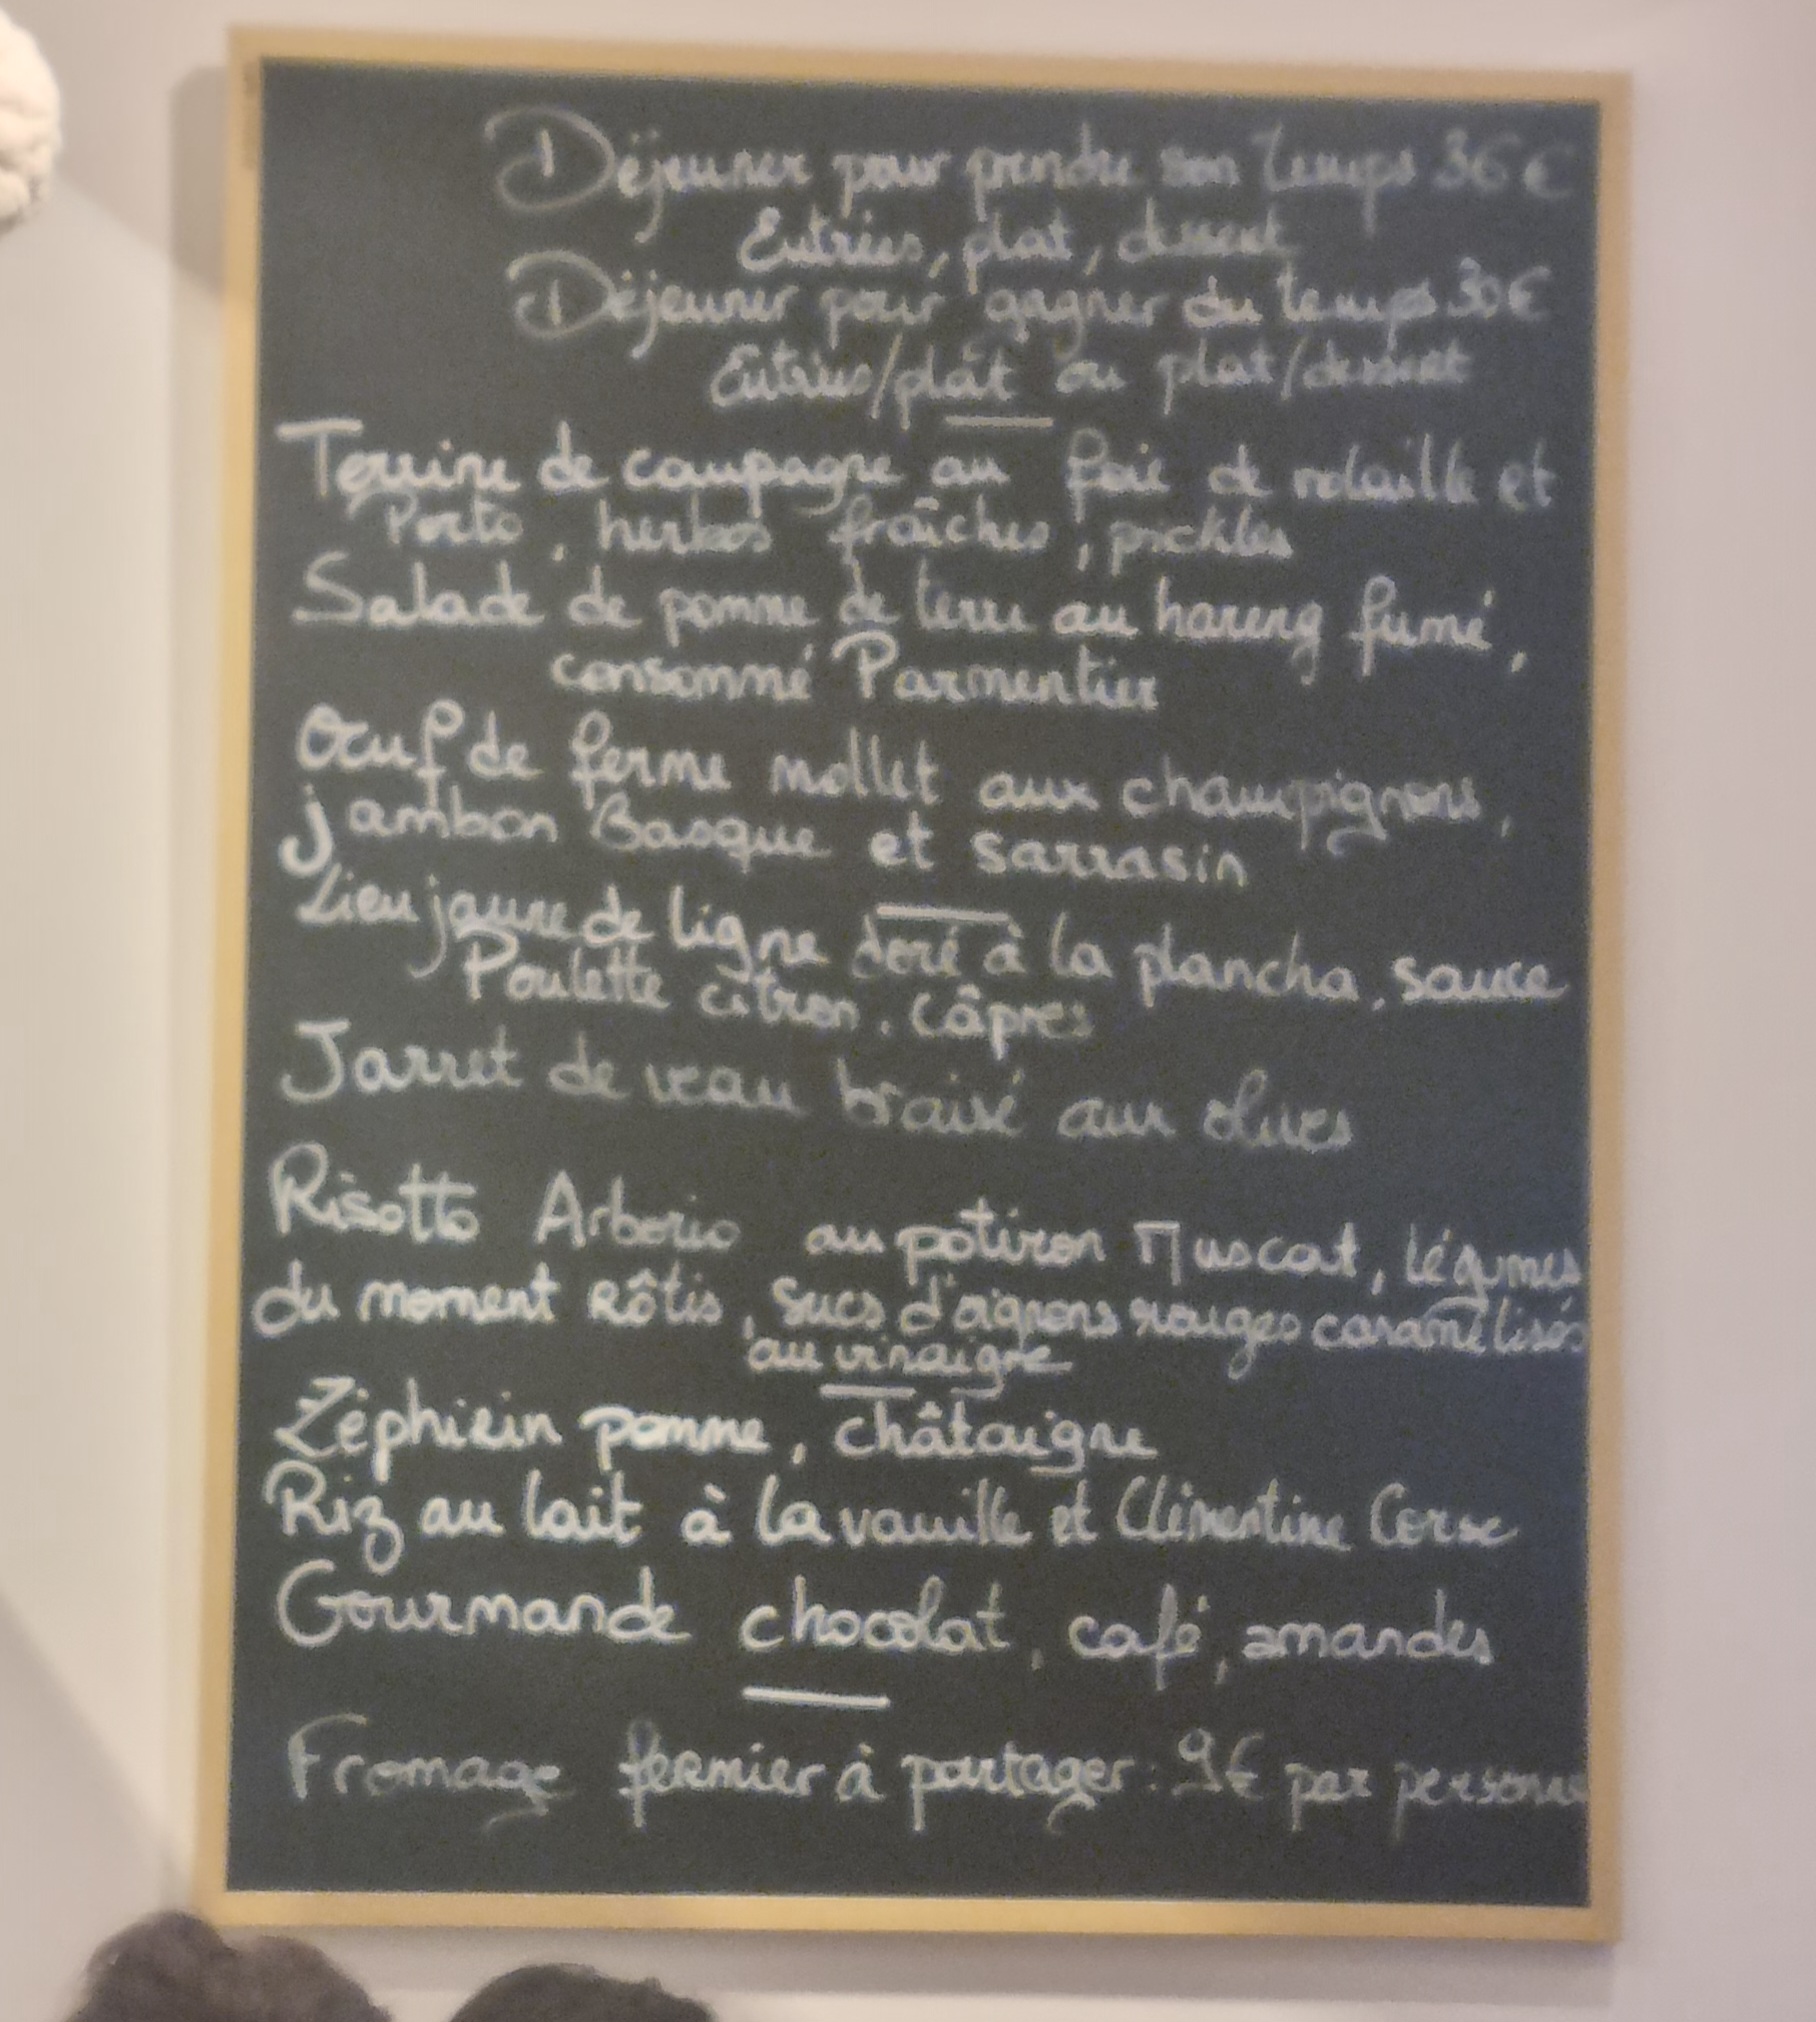 Déjeuner pour prendre son temps 36€
Entrées, plat, dessert
Déjeuner pour gagner du temps 30€
Entrées/plat ou plat/dessert
Terrine de campagne au foie de volaille et
Porto, herbes fraîches, prickles
Salade de pomme de terre au hareng fumé,
consommé Parmentier
Oeuf de ferme mollet aux champignons,
jambon Basque et sarrasin
Lieu jaune de ligne doré à la plancha, sauce
Poulette citron, câpres
Jarret de veau braisé aux olives
Risotto Arborio au potiron Muscat, légumes
du moment Rôtis, sucs d'oignons rouges caramélisés
au vinaigre
Zéphirin pomme, châtaigne
Riz au lait à la vanille et Clémentine Corse
Gourmande chocolat, café, amandes
Fromage fermier à partager : 9€ par personne